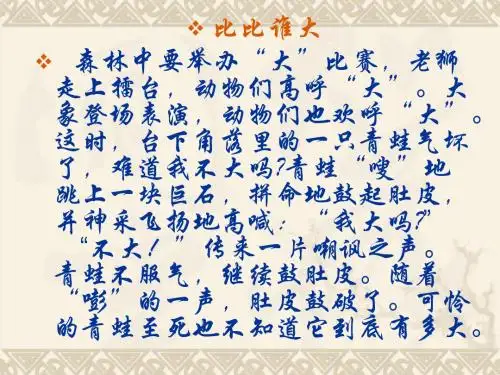 ❖ 比比谁大
❖ 森林中要举办“大”比赛，老狮
走上擂台，动物们高呼“大”。大
象登场表演，动物们也欢呼“大”。
这时，台下角落里的一只青蛙气坏
了，难道我不大吗?青蛙“嗖”地
跳上一块巨石，拼命地鼓起肚皮，
并神采飞扬地高喊：“我大吗?”
“不大！”传来一片嘲讽之声。
青蛙不服气，继续鼓肚皮。随着
“嘭”的一声，肚皮鼓破了。可怜
的青蛙至死也不知道它到底有多大。